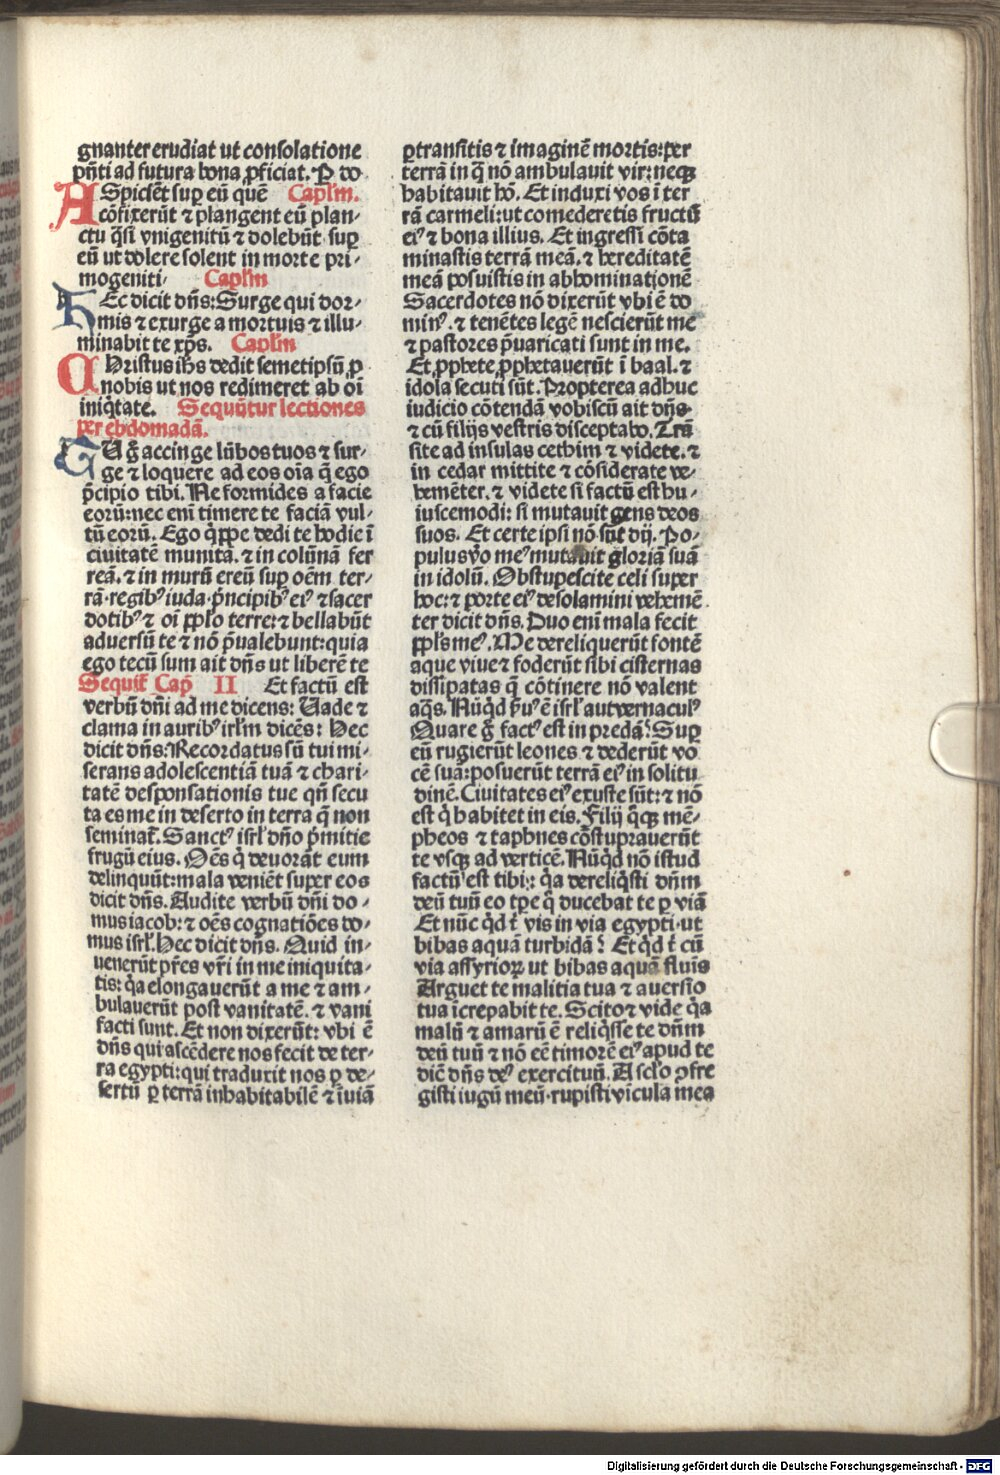 gnanter erudiat ut consolatione
pn̄ti ad futura bona ꝓficiat. P do
ASpiciēt suꝑ eū quē Caplm̄.
cōfixerūt ⁊ plangent eū plan⸗
ctu q̄si vnigenitū ⁊ dolebūt suꝑ
eū ut dolere solent in morte pri⸗
mogeniti. Caplm̄
HEc dicit dn̄s: Surge qui dor⸗
mis ⁊ exurge a mortuis ⁊ illu⸗
minabit te xp̄s. Caplm̄
CHristus ih̄s dedit semetipsū ꝓ
nobis ut nos redimeret ab oī
iniq̇tate. Sequūtur lectiones
per ebdomadā.
TU g̊ accinge lūbos tuos ⁊ sur⸗
ge ⁊ loquere ad eos oīa q̄ ego
p̄cipio tibi. Ne formides a facie
eorū: nec enī timere te faciā vul⸗
tū eorū. Ego q̇ppe dedi te hodie ī
ciuitatē munitā. ⁊ in colūnā fer
reā. ⁊ in murū ereū suꝑ oēm ter⸗
rā. regibꝰ iuda. p̄ncipibꝰ eiꝰ ⁊ sacer
dotibꝰ ⁊ oī pplo terre: ⁊ bellabūt
aduersū te ⁊ nō p̄ualebunt: quia
ego tecū sum ait dn̄s ut liberē te
Sequit᷑ Cap̄ II Et factū est
verbū dn̄i ad me dicens: Uade ⁊
clama in auribꝰ irl̄m dicēs: Hec
dicit dn̄s: Recordatus sū tui mi⸗
serans adolescentiā tuā ⁊ chari⸗
tatē desponsationis tue qn̄ secu
ta es me in deserto in terra q̄ non
seminat᷑. Sanctꝰ isrl̄ dn̄o p̄mitie
frugū eius. Oēs q̇ deuorāt eum
delinquūt: mala veniēt super eos
dicit dn̄s. Audite verbū dn̄i do⸗
mus iacob: ⁊ oēs cognatiōes do⸗
mus isrl̄. Hec dicit dn̄s. Quid in⸗
uenerūt pr̄es vr̄i in me iniquita⸗
tis: q̇a elongauerūt a me ⁊ am⸗
bulauerūt post vanitatē. ⁊ vani
facti sunt. Et non dixerūt: vbi ē
dn̄s qui ascēdere nos fecit de ter⸗
ra egypti: qui traduxit nos ꝑ de⸗
sertū ꝑ terrā inhabitabilē ⁊ īuiā
ꝑtransitis ⁊ imaginē mortis: per
terrā in q̄ nō ambulauit vir: neqꝫ
habitauit hō. Et induxi vos ī ter
rā carmeli: ut comederetis fructū
eiꝰ ⁊ bona illius. Et ingressi cōta
minastis terrā meā. ⁊ hereditatē
meā posuistis in abhominationē
Sacerdotes nō dixerūt vbi ē do
minꝰ. ⁊ tenētes legē nescierūt me
⁊ pastores p̄uaricati sunt in me.
Et ꝓphete ꝓphetauerūt ī baal. ⁊
idola secuti sūt. Propterea adhuc
iudicio cōtendā vobiscū ait dn̄s.
⁊ cū filijs vestris disceptabo. Trā
site ad insulas cethim ⁊ videte. ⁊
in cedar mittite ⁊ cōsiderate ve⸗
hemēter. ⁊ videte si factū est hu⸗
iuscemodi: si mutauit gens deos
suos. Et certe ipsi nō sūt dij. Po⸗
pulus v̊o meꝰ mutauit gloriā suā
in idolū. Obstupescite celi super
hoc: ⁊ porte eiꝰ desolamini vehemē
ter dicit dn̄s. Duo enī mala fecit
ppl̄s meꝰ. Me dereliquerūt fontē
aque viue ⁊ foderūt sibi cisternas
dissipatas q̄ cōtinere nō valent
aq̄s. Nūq̇d ẜuꝰ ē isrl̄ aut vernaculꝰ
Quare g̊ factꝰ est in predā? Suꝑ
eū rugierūt leones ⁊ dederūt vo
cē suā: posuerūt terrā eiꝰ in solitu
dinē. Ciuitates eiꝰ exuste sūt: ⁊ nō
est q̇ habitet in eis. Filij q̊qꝫ mē⸗
pheos ⁊ taphnes cōstuprauerūt
te vsqꝫ ad verticē. Nūq̇d nō istud
factū est tibi: q̇a dereliq̇sti dn̄m
deū tuū eo tꝑe q̊ ducebat te ꝑ viā
Et nūc q̇d t᷑ vis in via egypti. ut
bibas aquā turbidā? Et q̇d t᷑ cū
via assyrioꝝ ut bibas aquā fluīs
Arguet te malitia tua ⁊ auersio
tua īcrepabit te. Scito ⁊ vide q̇a
malū ⁊ amarū ē reliq̇sse te dn̄m
deū tuū ⁊ nō eē timorē eiꝰ apud te
dic̄ dn̄s deꝰ exercituū. A sclo ꝯfre
gisti iugū meū. rupisti vīcula mea
Digitalisierung gefördert durch die Deutsche Forschungsgemeinschaft - DFG